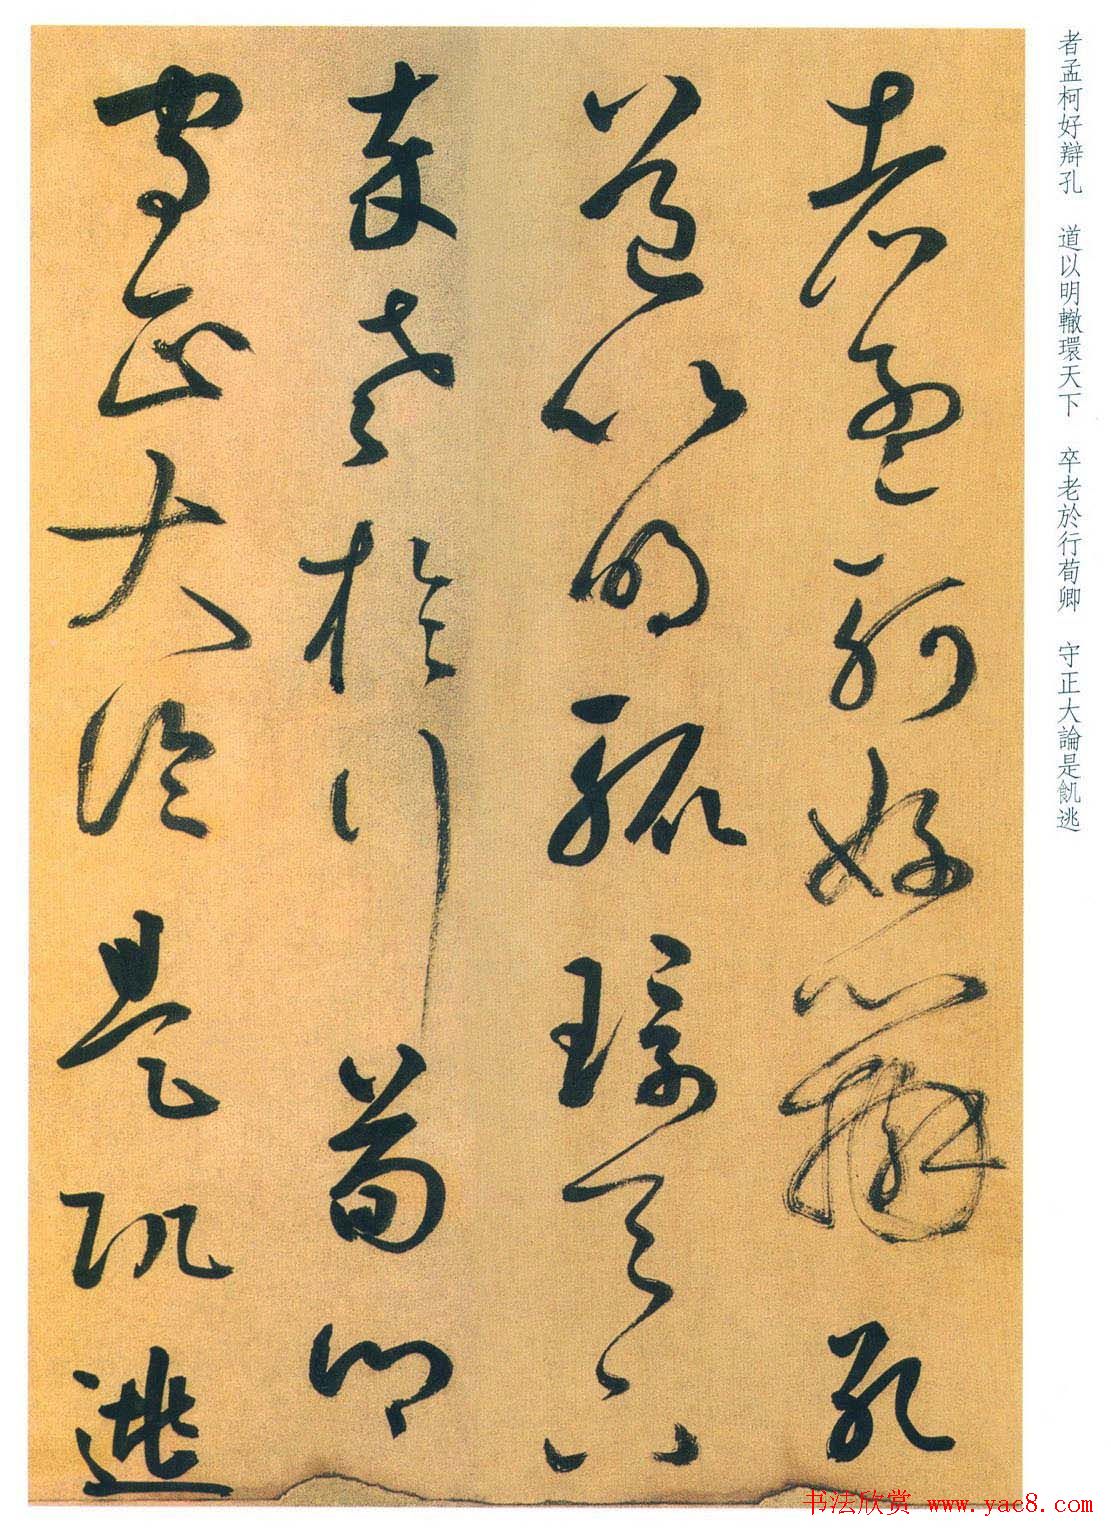 者孟柯好辯孔
道以明轍環天下
卒老於行荀卿
守正大論是飢逃
者孟柯好辯孔　道以明轍環天下　卒老於行荀卿　守正大論是飢逃
书法欣赏 www.yac8.com